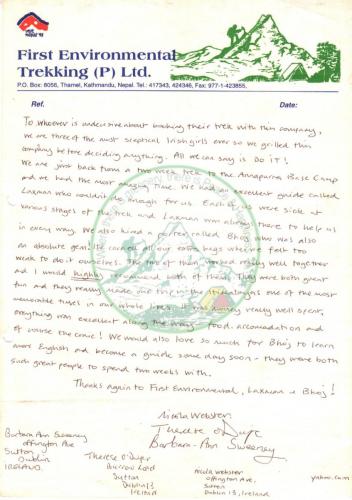 First Environmental
Trekking (P) Ltd.
P.O. Box: 8056, Thamel, Kathmandu, Nepal. Tel.: 417343, 424346, Fax: 977-1-423855.
Ref. Date:
To whoever is undecisive about booking their trek with this company,
we are three of the most sceptical Irish girls ever so we grilled this
company before deciding anything. All we can say is DO IT!
We are just back from a two week trek to the Annapurna Base Camp
and we had the most amazing time. We had an excellent guide called
Laxman who couldn't do enough for us. Each of us were sick at
various stages of the trek and Laxman was always there to help us
in every way. We also hired a porter called Bhoj who was also
an absolute gem! He carried all our extra bags when we felt too
weak to do it ourselves. The two of them worked really well together
and I would highly recommend both of them. They were both great
fun and they really made our trip in the Himalayas one of the most
memorable times in our whole lives. It was money really well spent,
everything was excellent along the way - food, accomodation and
of course the crac! We would also love so much for Bhoj to learn
more English and become a guide some day soon - they were both
such great people to spend two weeks with.
Thanks again to First Environmental, Laxman & Bhoj!
Nicola Webster
Therese O'Dwyer
Barbara-Ann Sweeney
Barbara Ann Sweeney
Offington Ave
Sutton
Dublin
IRELAND.
Therese O'Dwyer
Burrow Road
Sutton
Dublin 13
Ireland
Nicola Webster
Offington Ave,
Sutton
Dublin 13, Ireland
yahoo.com